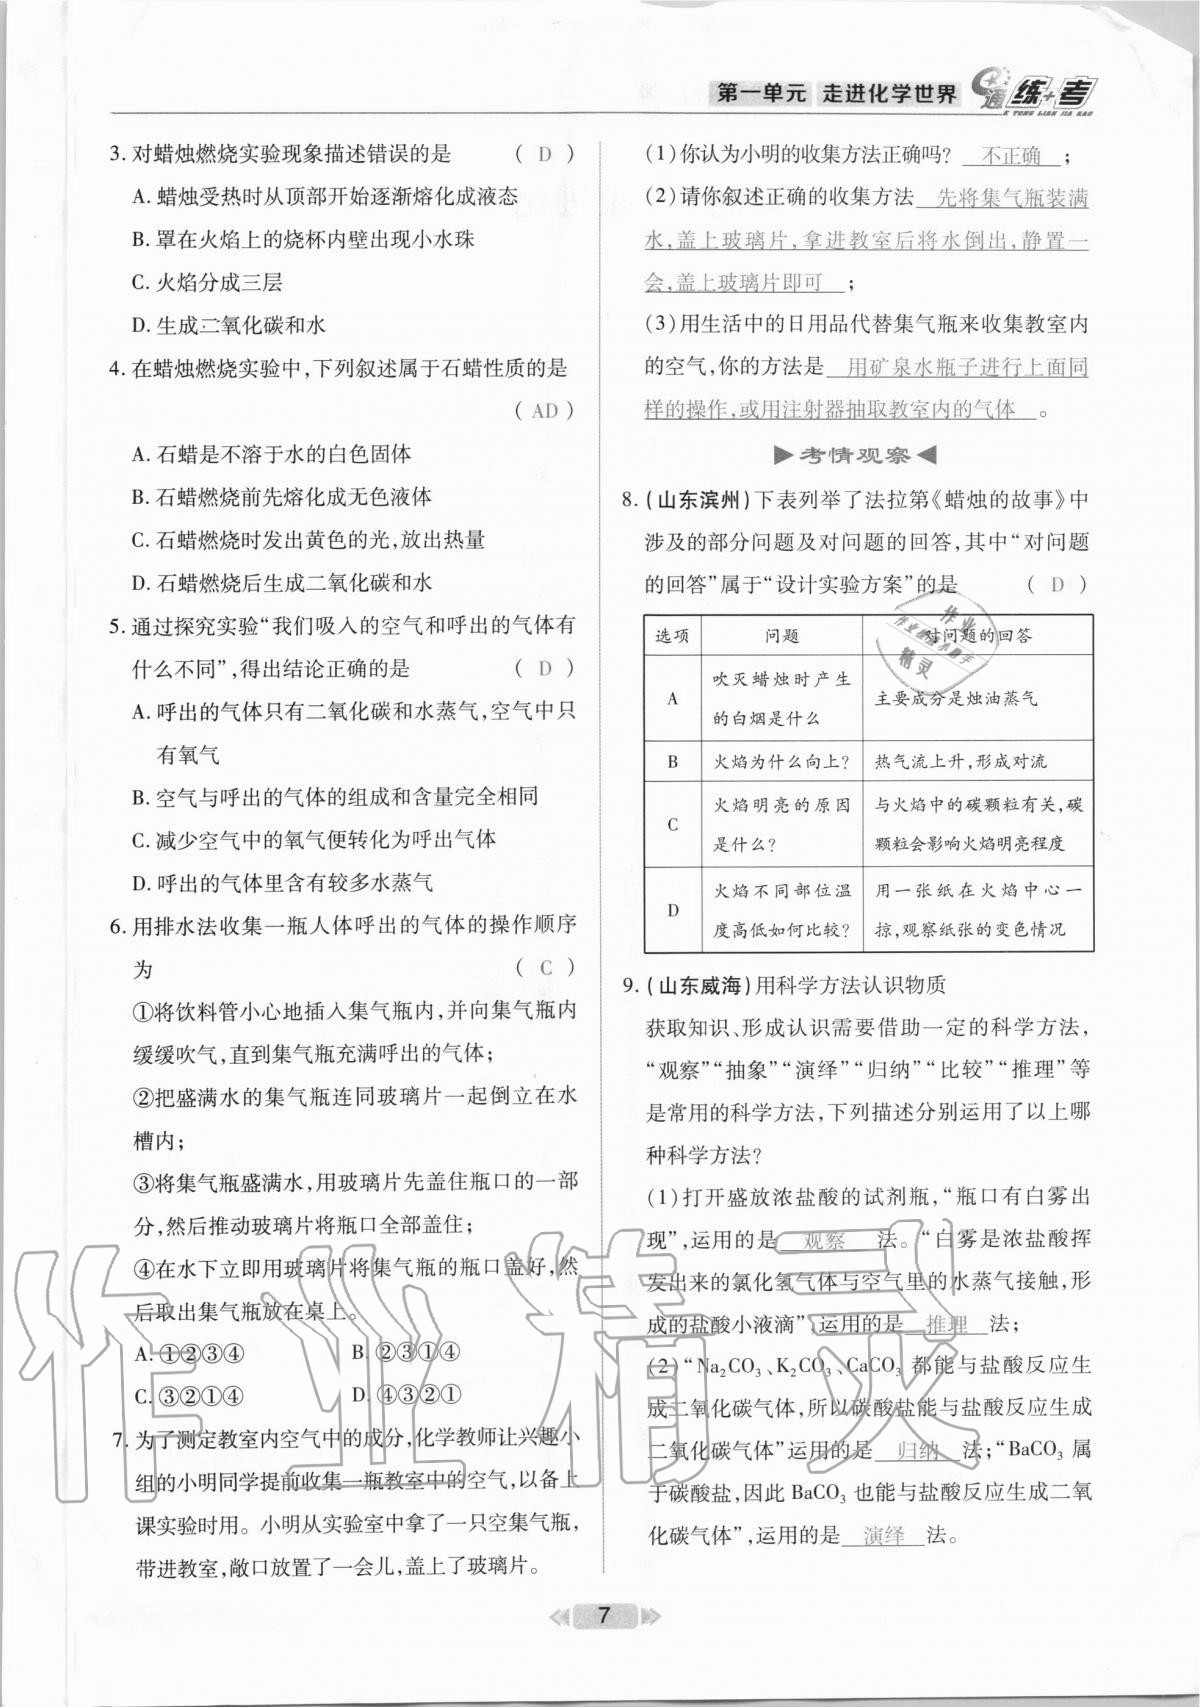 第一单元 走进化学世界
通 练+考
E TONG LIAN JIA KAO
3. 对蜡烛燃烧实验现象描述错误的是 ( D )
A. 蜡烛受热时从顶部开始逐渐熔化成液态
B. 罩在火焰上的烧杯内壁出现小水珠
C. 火焰分成三层
D. 生成二氧化碳和水
4. 在蜡烛燃烧实验中,下列叙述属于石蜡性质的是
( AD )
A. 石蜡是不溶于水的白色固体
B. 石蜡燃烧前先熔化成无色液体
C. 石蜡燃烧时发出黄色的光,放出热量
D. 石蜡燃烧后生成二氧化碳和水
5. 通过探究实验“我们吸入的空气和呼出的气体有
什么不同”,得出结论正确的是 ( D )
A. 呼出的气体只有二氧化碳和水蒸气,空气中只
有氧气
B. 空气与呼出的气体的组成和含量完全相同
C. 减少空气中的氧气便转化为呼出气体
D. 呼出的气体里含有较多水蒸气
6. 用排水法收集一瓶人体呼出的气体的操作顺序
为 ( C )
①将饮料管小心地插入集气瓶内,并向集气瓶内
缓缓吹气,直到集气瓶充满呼出的气体;
②把盛满水的集气瓶连同玻璃片一起倒立在水
槽内;
③将集气瓶盛满水,用玻璃片先盖住瓶口的一部
分,然后推动玻璃片将瓶口全部盖住;
④在水下立即用玻璃片将集气瓶的瓶口盖好,然
后取出集气瓶放在桌上。
A. ①②③④ B. ②③①④
C. ③②①④ D. ④③②①
7. 为了测定教室内空气中的成分,化学教师让兴趣小
组的小明同学提前收集一瓶教室中的空气,以备上
课实验时用。小明从实验室中拿了一只空集气瓶,
带进教室,敞口放置了一会儿,盖上了玻璃片。
(1)你认为小明的收集方法正确吗? 不正确 ;
(2)请你叙述正确的收集方法 先将集气瓶装满
水,盖上玻璃片,拿进教室后将水倒出,静置一
会,盖上玻璃片即可 ;
(3)用生活中的日用品代替集气瓶来收集教室内
的空气,你的方法是 用矿泉水瓶子进行上面同
样的操作,或用注射器抽取教室内的气体 。
考情观察
8. (山东滨州)下表列举了法拉第《蜡烛的故事》中
涉及的部分问题及对问题的回答,其中“对问题
的回答”属于“设计实验方案”的是 ( D )
选项 问题 对问题的回答
A 吹灭蜡烛时产生的白烟是什么 主要成分是烛油蒸气
B 火焰为什么向上? 热气流上升,形成对流
C 火焰明亮的原因是什么? 与火焰中的碳颗粒有关,碳颗粒会影响火焰明亮程度
D 火焰不同部位温度高低如何比较? 用一张纸在火焰中心一掠,观察纸张的变色情况
9. (山东威海)用科学方法认识物质
获取知识、形成认识需要借助一定的科学方法,
“观察”“抽象”“演绎”“归纳”“比较”“推理”等
是常用的科学方法,下列描述分别运用了以上哪
种科学方法?
(1)打开盛放浓盐酸的试剂瓶,“瓶口有白雾出
现”,运用的是 观察 法。“白雾是浓盐酸挥
发出来的氯化氢气体与空气里的水蒸气接触,形
成的盐酸小液滴”,运用的是 推理 法;
(2)“Na₂CO₃、K₂CO₃、CaCO₃都能与盐酸反应生
成二氧化碳气体,所以碳酸盐能与盐酸反应生成
二氧化碳气体”运用的是 归纳 法;“BaCO₃属
于碳酸盐,因此BaCO₃也能与盐酸反应生成二氧
化碳气体”,运用的是 演绎 法。
7
作业精灵